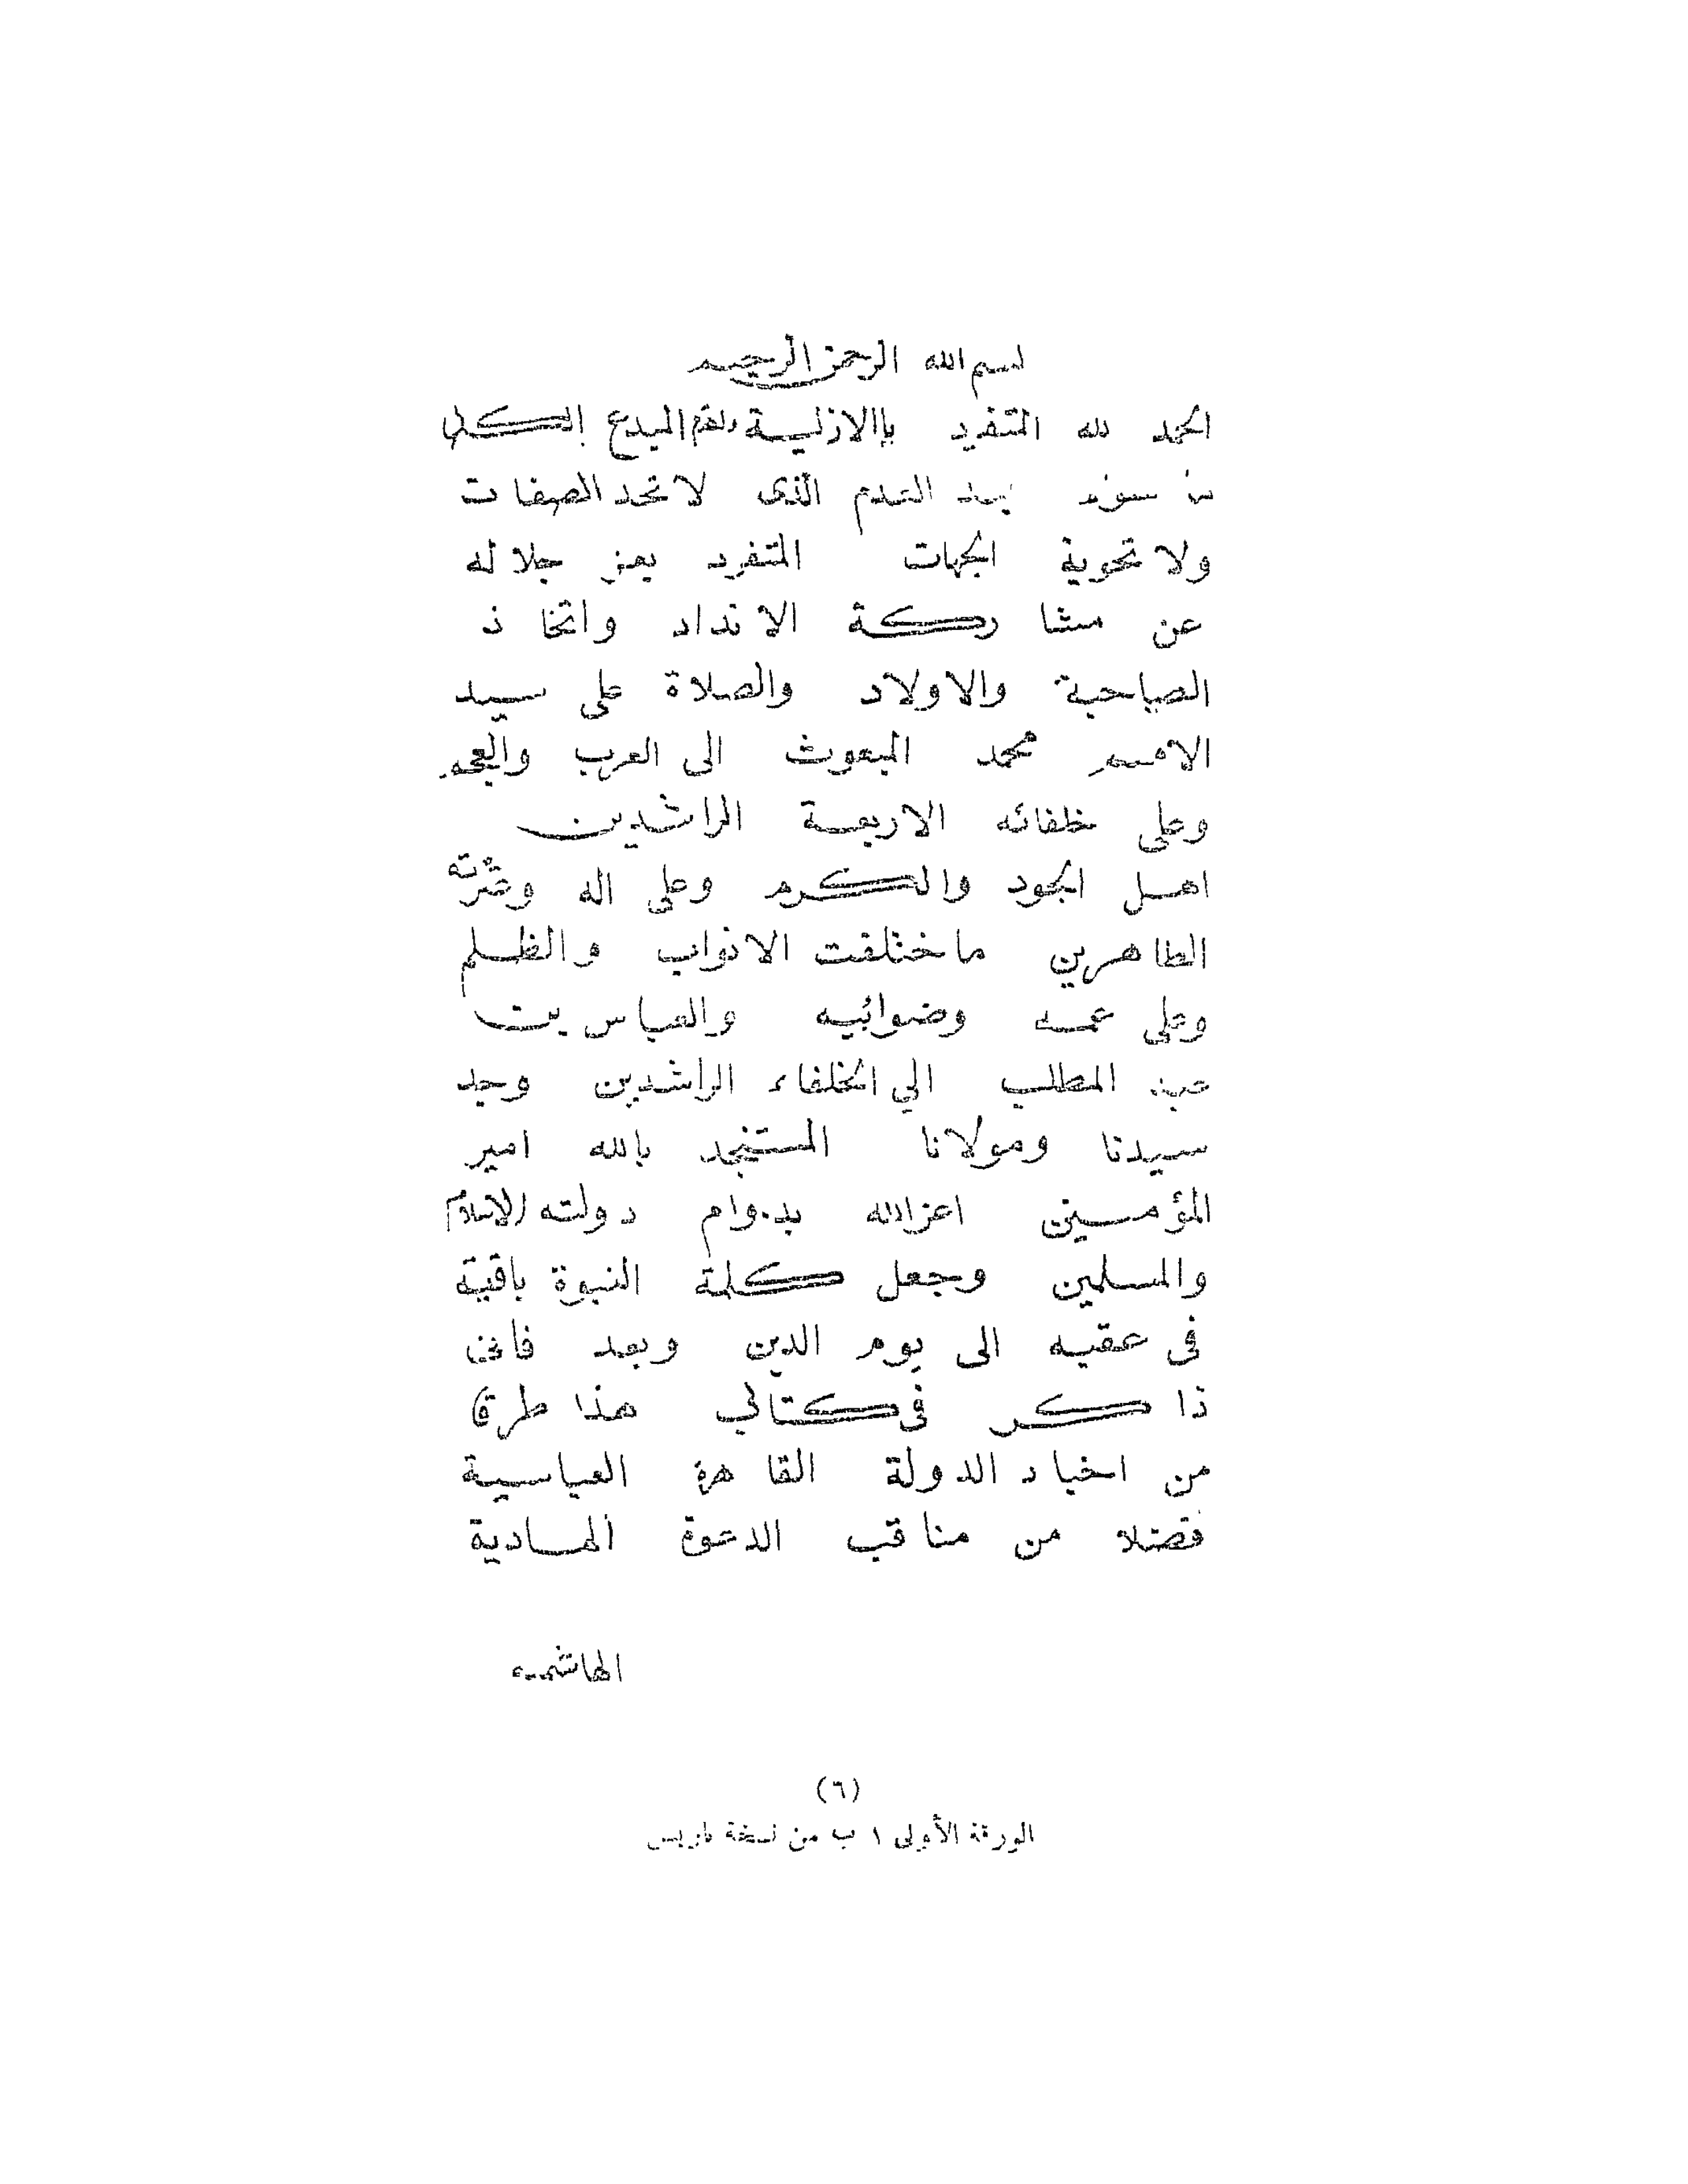 بسم الله الرحمن الرحيم
الحمد لله المتفرد باالازلية والقدم المبدع الكل
من بيد العدم الذى لا تحد الصفات
ولا تحوية الجهات المتفرد بعز جلاله
عن مشاركة الانداد واتخاذ
الصاحبة والاولاد والصلاة على سيد
الامم محمد المبعوث الى العرب والعجم
وعلى خلفائه الاربعة الراشدين
اهل الجود والكرم وعلى اله وعترته
الطاهرين ماختلفت الانواب والظلم
وعلى عمه وضوابيه والعباس بن
عبد المطلب الي الخلفاء الراشدين وجد
سيدنا ومولانا المستنجد بالله امير
المؤمنين اعزالله بدوام دولته الاسلام
والمسلمين وجعل كلمة النبوة باقية
فى عقبه الى يوم الدين وبعد فانى
ذاكر فى كتابي هذا طرق
من اخبار الدولة القاهرة العباسية
فضلا من مناقب الدعوة الهادية
الهاشميه
(٦)
الورقة الأولى ١ ب من نسخة باريس